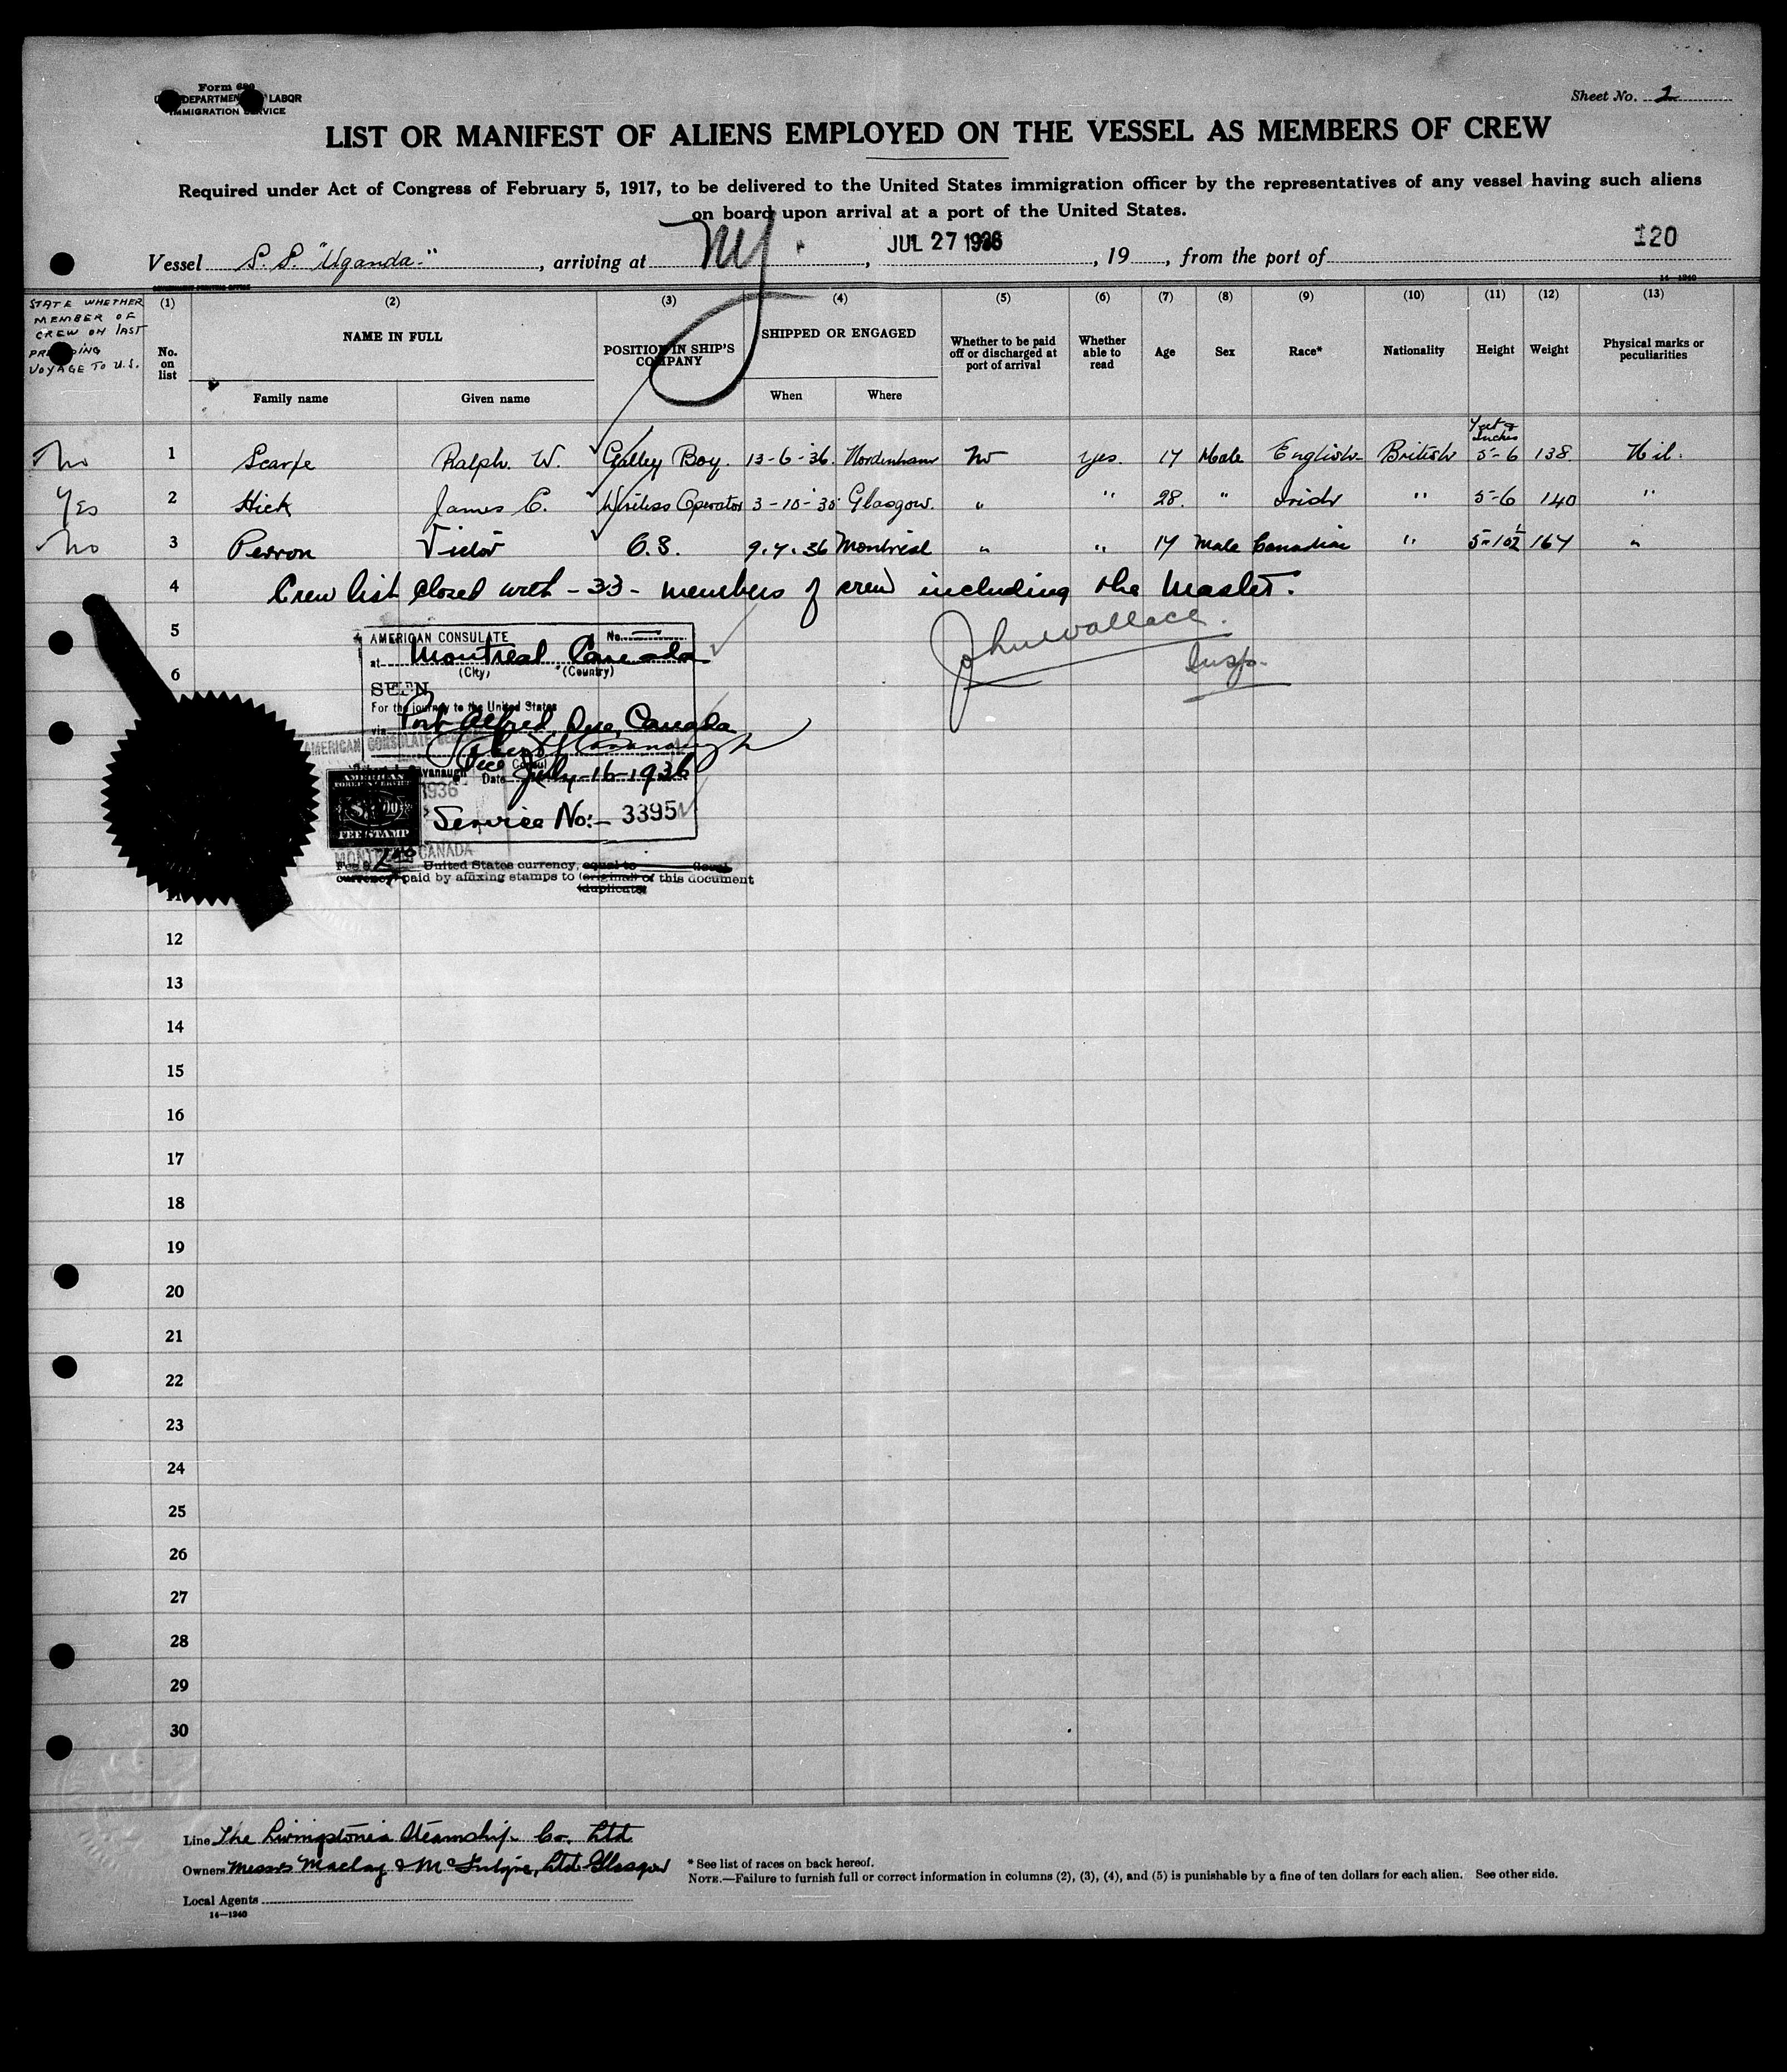 Form 680
DEPARTMENT LABOR
IMMIGRATION SERVICE
Sheet No. 2
LIST OR MANIFEST OF ALIENS EMPLOYED ON THE VESSEL AS MEMBERS OF CREW
Required under Act of Congress of February 5, 1917, to be delivered to the United States immigration officer by the representatives of any vessel having such aliens
on board upon arrival at a port of the United States.
120
Vessel S.S. "Uganda", arriving at NY., JUL 27 1936, 19, from the port of
14-1240
STATE WHETHER MEMBER OF CREW ON LAST PRECEDING VOYAGE TO U.S.
(1) (2) (3) (4) (5) (6) (7) (8) (9) (10) (11) (12) (13)
No. on list NAME IN FULL POSITION IN SHIP'S COMPANY SHIPPED OR ENGAGED Whether to be paid off or discharged at port of arrival Whether able to read Age Sex Race* Nationality Height Weight Physical marks or peculiarities
Family name Given name When Where
Feet & Inches
No 1 Scarfe Ralph. W. Galley Boy. 13-6-36. Nordenham No Yes. 17 Male English British 5-6 138. Nil.
Yes 2 Hick James C. Wireless Operator 3-10-35 Glasgow. " " 28. " Irish " 5-6 140 "
No 3 Perron Victor O.S. 9.7.36 Montreal " " 17 Male Canadian " 5-10½ 167 "
4 Crew list closed with - 33 - members of crew including the Master.
5
John Wallace.
Insp.
6
AMERICAN CONSULATE No.
at Montreal Canada
(City) (Country)
SEEN
For the journey to the United States
via Port Alfred, Que, Canada
Vice Consul
Date July-16-1936
Service No:- 3395
AMERICAN
$2.00
FEE STAMP
MONTREAL CANADA
United States currency, equal to
currency, paid by affixing stamps to (original) of this document
(duplicate)
11
12
13
14
15
16
17
18
19
20
21
22
23
24
25
26
27
28
29
30
Line The Livingstonia Steamship Co. Ltd
Owners Messrs Maclay & McIntyre, Ltd Glasgow
* See list of races on back hereof.
NOTE.—Failure to furnish full or correct information in columns (2), (3), (4), and (5) is punishable by a fine of ten dollars for each alien. See other side.
Local Agents
14-1240